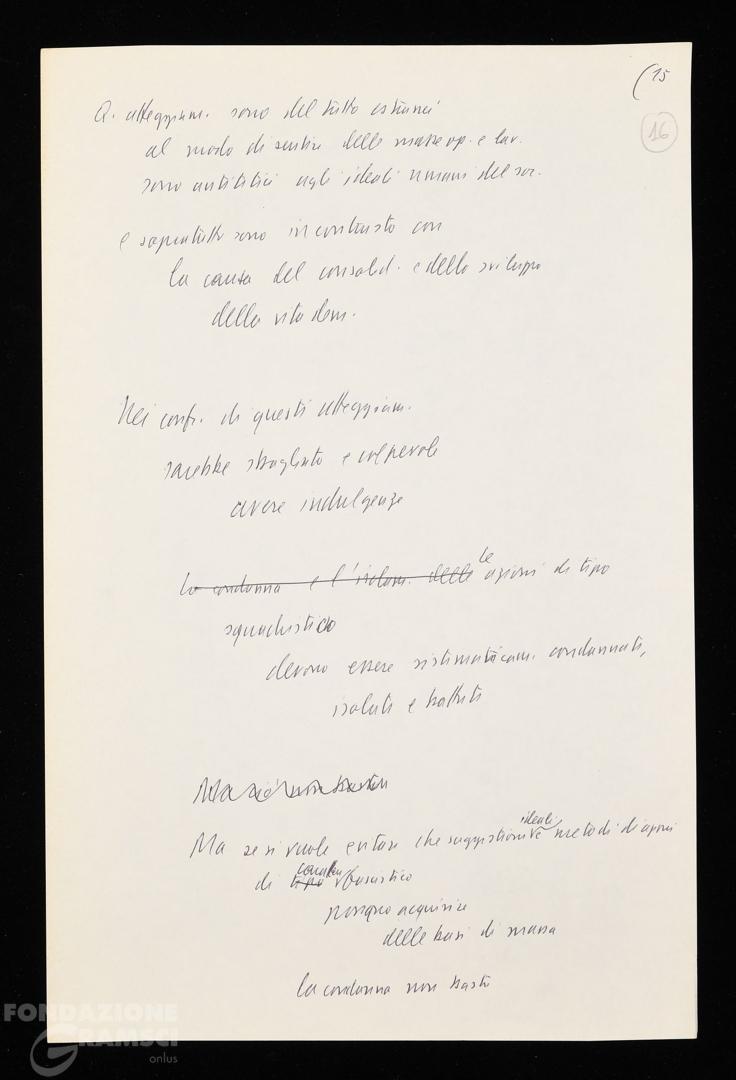 (15
16
Q. atteggiam. sono del tutto estranei
al modo di sentire delle masse op. e lav.
sono antitetici agli ideali umani del soc.
e soprattutto sono in contrasto con
la causa del consolid. e dello sviluppo
della vita dem.
Nei confr. di questi atteggiam.
sarebbe sbagliato e colpevole
avere indulgenze
la condanna e l'isolam. delle le azioni di tipo
squadristico
devono essere sistematicam. condannate,
isolate e battute
Ma ciò non basta
Ma se si vuole evitare che suggestioni ideali e metodi di azioni
di tipo carattere fascistico
possano acquisire
delle basi di massa
la condanna non basta
FONDAZIONE
GRAMSCI
onlus